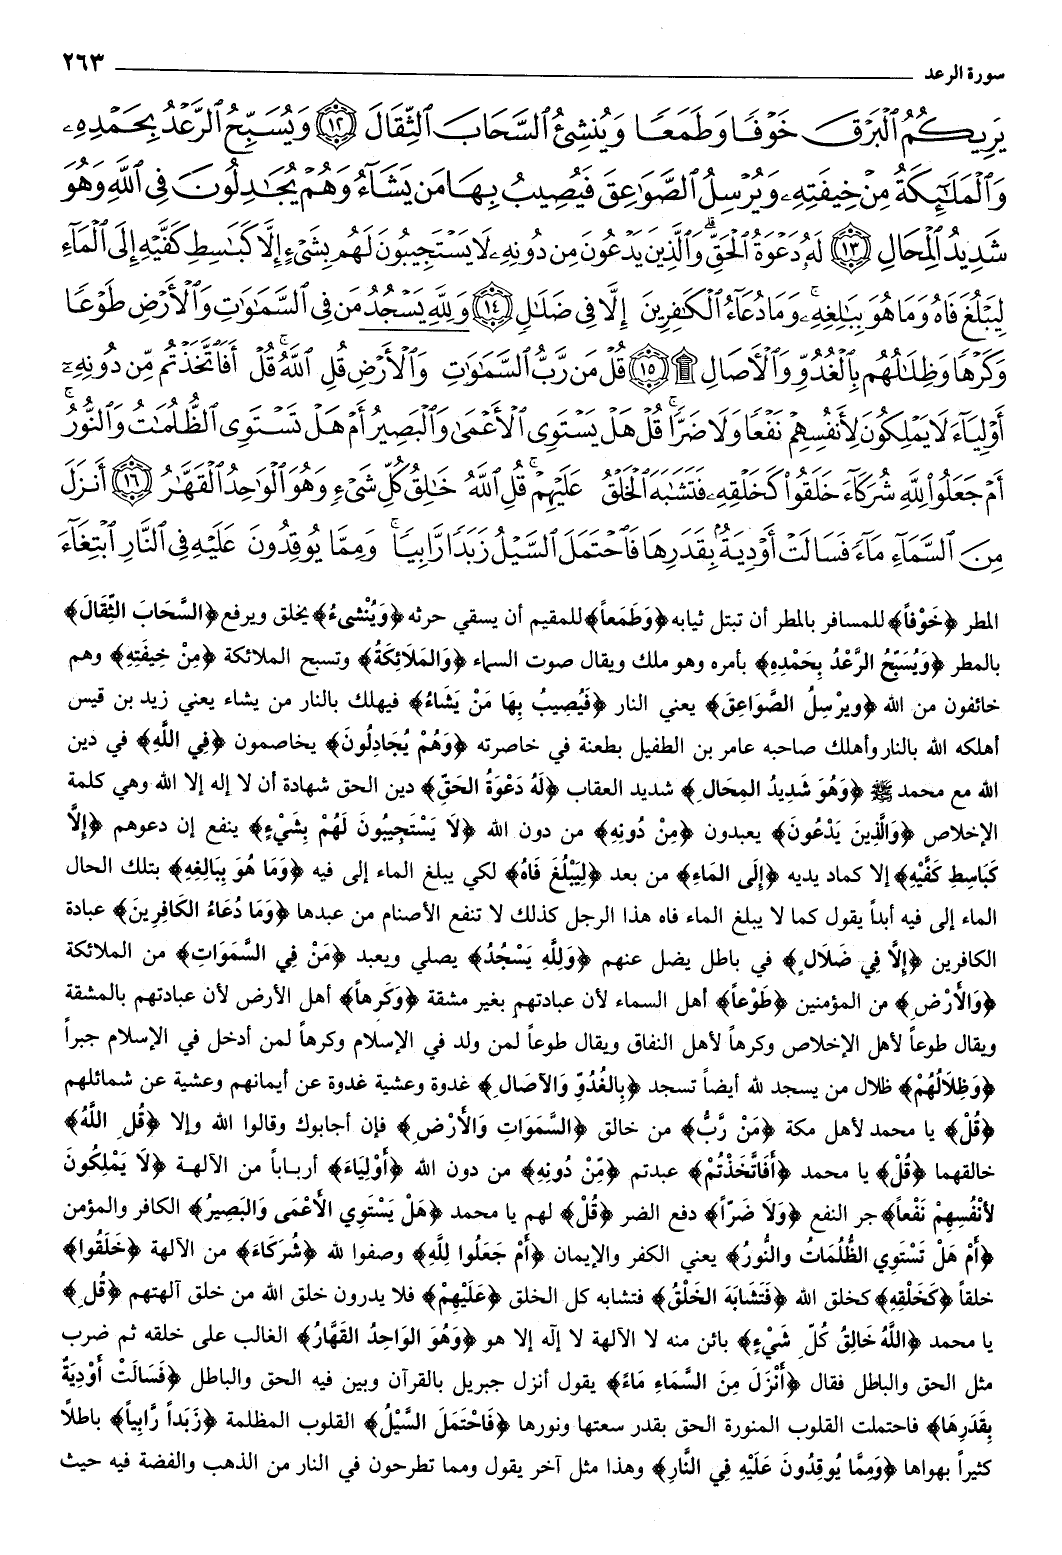 سورة الرعد ٢٦٣
يُرِيكُمُ ٱلْبَرْقَ خَوْفًا وَطَمَعًا وَيُنشِئُ ٱلسَّحَابَ ٱلثِّقَالَ ١٢ وَيُسَبِّحُ ٱلرَّعْدُ بِحَمْدِهِۦ
وَٱلْمَلَٰٓئِكَةُ مِنْ خِيفَتِهِۦ وَيُرْسِلُ ٱلصَّوَٰعِقَ فَيُصِيبُ بِهَا مَن يَشَآءُ وَهُمْ يُجَٰدِلُونَ فِى ٱللَّهِ وَهُوَ
شَدِيدُ ٱلْمِحَالِ ١٣ لَهُۥ دَعْوَةُ ٱلْحَقِّ ۖ وَٱلَّذِينَ يَدْعُونَ مِن دُونِهِۦ لَا يَسْتَجِيبُونَ لَهُم بِشَىْءٍ إِلَّا كَبَٰسِطِ كَفَّيْهِ إِلَى ٱلْمَآءِ
لِيَبْلُغَ فَاهُ وَمَا هُوَ بِبَٰلِغِهِۦ ۚ وَمَا دُعَآءُ ٱلْكَٰفِرِينَ إِلَّا فِى ضَلَٰلٍ ١٤ وَلِلَّهِ يَسْجُدُ مَن فِى ٱلسَّمَٰوَٰتِ وَٱلْأَرْضِ طَوْعًا
وَكَرْهًا وَظِلَٰلُهُم بِٱلْغُدُوِّ وَٱلْءَاصَالِ ۩ ١٥ قُلْ مَن رَّبُّ ٱلسَّمَٰوَٰتِ وَٱلْأَرْضِ قُلِ ٱللَّهُ ۚ قُلْ أَفَٱتَّخَذْتُم مِّن دُونِهِۦٓ
أَوْلِيَآءَ لَا يَمْلِكُونَ لِأَنفُسِهِمْ نَفْعًا وَلَا ضَرًّا ۚ قُلْ هَلْ يَسْتَوِى ٱلْأَعْمَىٰ وَٱلْبَصِيرُ أَمْ هَلْ تَسْتَوِى ٱلظُّلُمَٰتُ وَٱلنُّورُ ۗ
أَمْ جَعَلُوا۟ لِلَّهِ شُرَكَآءَ خَلَقُوا۟ كَخَلْقِهِۦ فَتَشَٰبَهَ ٱلْخَلْقُ عَلَيْهِمْ ۚ قُلِ ٱللَّهُ خَٰلِقُ كُلِّ شَىْءٍ وَهُوَ ٱلْوَٰحِدُ ٱلْقَهَّٰرُ ١٦ أَنزَلَ
مِنَ ٱلسَّمَآءِ مَآءً فَسَالَتْ أَوْدِيَةٌۢ بِقَدَرِهَا فَٱحْتَمَلَ ٱلسَّيْلُ زَبَدًا رَّابِيًا ۚ وَمِمَّا يُوقِدُونَ عَلَيْهِ فِى ٱلنَّارِ ٱبْتِغَآءَ
المطر ﴿خَوْفاً﴾ للمسافر بالمطر أن تبتل ثيابه ﴿وَطَمَعاً﴾ للمقيم أن يسقي حرثه ﴿وَيُنْشىءُ﴾ يخلق ويرفع ﴿السَّحَابَ الثِّقَالَ﴾
بالمطر ﴿وَيُسَبِّحُ الرَّعْدُ بِحَمْدِهِ﴾ بأمره وهو ملك ويقال صوت السماء ﴿وَالمَلَائِكَةُ﴾ وتسبح الملائكة ﴿مِنْ خِيفَتِهِ﴾ وهم
خائفون من الله ﴿ويرْسِلُ الصَّوَاعِقَ﴾ يعني النار ﴿فَيُصِيبُ بِهَا مَنْ يَشَاءُ﴾ فيهلك بالنار من يشاء يعني زيد بن قيس
أهلكه الله بالنار وأهلك صاحبه عامر بن الطفيل بطعنة في خاصرته ﴿وَهُمْ يُجَادِلُونَ﴾ يخاصمون ﴿فِي اللَّهِ﴾ في دين
الله مع محمد ﷺ ﴿وَهُوَ شَدِيدُ المِحَالِ﴾ شديد العقاب ﴿لَهُ دَعْوَةُ الحَقِّ﴾ دين الحق شهادة أن لا إله إلا الله وهي كلمة
الإخلاص ﴿وَالَّذِينَ يَدْعُونَ﴾ يعبدون ﴿مِنْ دُونِهِ﴾ من دون الله ﴿لَا يَسْتَجِيبُونَ لَهُمْ بِشَيْءٍ﴾ ينفع إن دعوهم ﴿إِلَّا
كَبَاسِطِ كَفَّيْهِ﴾ إلا كماد يديه ﴿إِلَى المَاءِ﴾ من بعد ﴿لِيَبْلُغَ فَاهُ﴾ لكي يبلغ الماء إلى فيه ﴿وَمَا هُوَ بِبَالِغِهِ﴾ بتلك الحال
الماء إلى فيه أبداً يقول كما لا يبلغ الماء فاه هذا الرجل كذلك لا تنفع الأصنام من عبدها ﴿وَمَا دُعَاءُ الكَافِرِينَ﴾ عبادة
الكافرين ﴿إِلَّا فِي ضَلَالٍ﴾ في باطل يضل عنهم ﴿وَلِلَّهِ يَسْجُدُ﴾ يصلي ويعبد ﴿مَنْ فِي السَّمَوَاتِ﴾ من الملائكة
﴿وَالأَرْضِ﴾ من المؤمنين ﴿طَوْعاً﴾ أهل السماء لأن عبادتهم بغير مشقة ﴿وَكَرهاً﴾ أهل الأرض لأن عبادتهم بالمشقة
ويقال طوعاً لأهل الإخلاص وكرهاً لأهل النفاق ويقال طوعاً لمن ولد في الإسلام وكرهاً لمن أدخل في الإسلام جبراً
﴿وَظِلَالُهُمْ﴾ ظلال من يسجد لله أيضاً تسجد ﴿بِالغُدُوِّ وَالآصَالِ﴾ غدوة وعشية غدوة عن أيمانهم وعشية عن شمائلهم
﴿قُلْ﴾ يا محمد لأهل مكة ﴿مَنْ رَّبُّ﴾ من خالق ﴿السَّمَوَاتِ وَالأَرْضِ﴾ فإن أجابوك وقالوا الله وإلا ﴿قُلِ اللَّهُ﴾
خالقهما ﴿قُلْ﴾ يا محمد ﴿أَفَاتَّخَذْتُمْ﴾ عبدتم ﴿مِّنْ دُونِهِ﴾ من دون الله ﴿أَوْلِيَاءَ﴾ أرباباً من الآلهة ﴿لَا يَمْلِكُونَ
لأَنْفُسِهِمْ نَفْعاً﴾ جر النفع ﴿وَلَا ضَرّاً﴾ دفع الضر ﴿قُلْ﴾ لهم يا محمد ﴿هَلْ يَسْتَوِي الأَعْمَى وَالبَصِيرُ﴾ الكافر والمؤمن
﴿أَمْ هَلْ تَسْتَوِي الظُّلُمَاتُ والنُّورُ﴾ يعني الكفر والإيمان ﴿أَمْ جَعَلُوا لِلَّهِ﴾ وصفوا لله ﴿شُرَكَاءَ﴾ من الآلهة ﴿خَلَقُوا﴾
خلقاً ﴿كَخَلْقِهِ﴾ كخلق الله ﴿فَتَشَابَهَ الخَلْقُ﴾ فتشابه كل الخلق ﴿عَلَيْهِمْ﴾ فلا يدرون خلق الله من خلق آلهتهم ﴿قُلِ﴾
يا محمد ﴿اللَّهُ خَالِقُ كُلِّ شَيْءٍ﴾ بائن منه لا الآلهة لا إله إلا هو ﴿وَهُوَ الوَاحِدُ القَهَّارُ﴾ الغالب على خلقه ثم ضرب
مثل الحق والباطل فقال ﴿أَنْزَلَ مِنَ السَّمَاءِ مَاءً﴾ يقول أنزل جبريل بالقرآن وبين فيه الحق والباطل ﴿فَسَالَتْ أَوْدِيَةٌ
بِقَدَرِهَا﴾ فاحتملت القلوب المنورة الحق بقدر سعتها ونورها ﴿فَاحْتَمَلَ السَّيْلُ﴾ القلوب المظلمة ﴿زَبَداً رَّابِياً﴾ باطلاً
كثيراً بهواها ﴿وَمِمَّا يُوقِدُونَ عَلَيْهِ فِي النَّارِ﴾ وهذا مثل آخر يقول ومما تطرحون في النار من الذهب والفضة فيه حيث